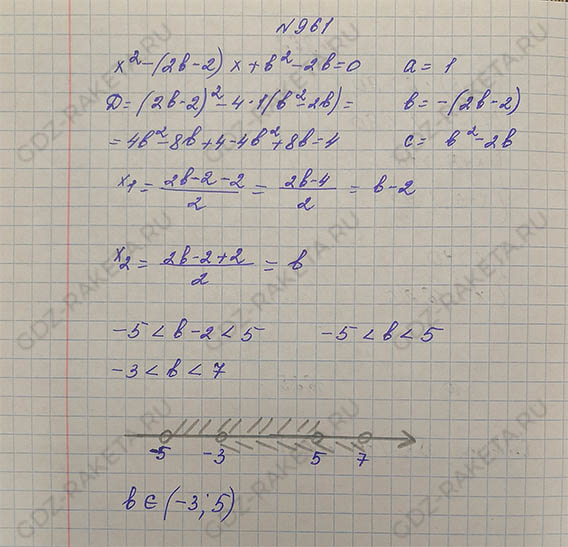 №961
x² - (2b-2)x + b² - 2b = 0    a = 1
D = (2b-2)² - 4·1(b²-2b) =    b = -(2b-2)
= 4b² - 8b + 4 - 4b² + 8b = 4    c = b² - 2b
x₁ = (2b-2-2)/2 = (2b-4)/2 = b-2
x₂ = (2b-2+2)/2 = b
-5 < b-2 < 5    -5 < b < 5
-3 < b < 7
-5 -3 5 7
b ∈ (-3; 5)
GDZ-RAKETA.RU